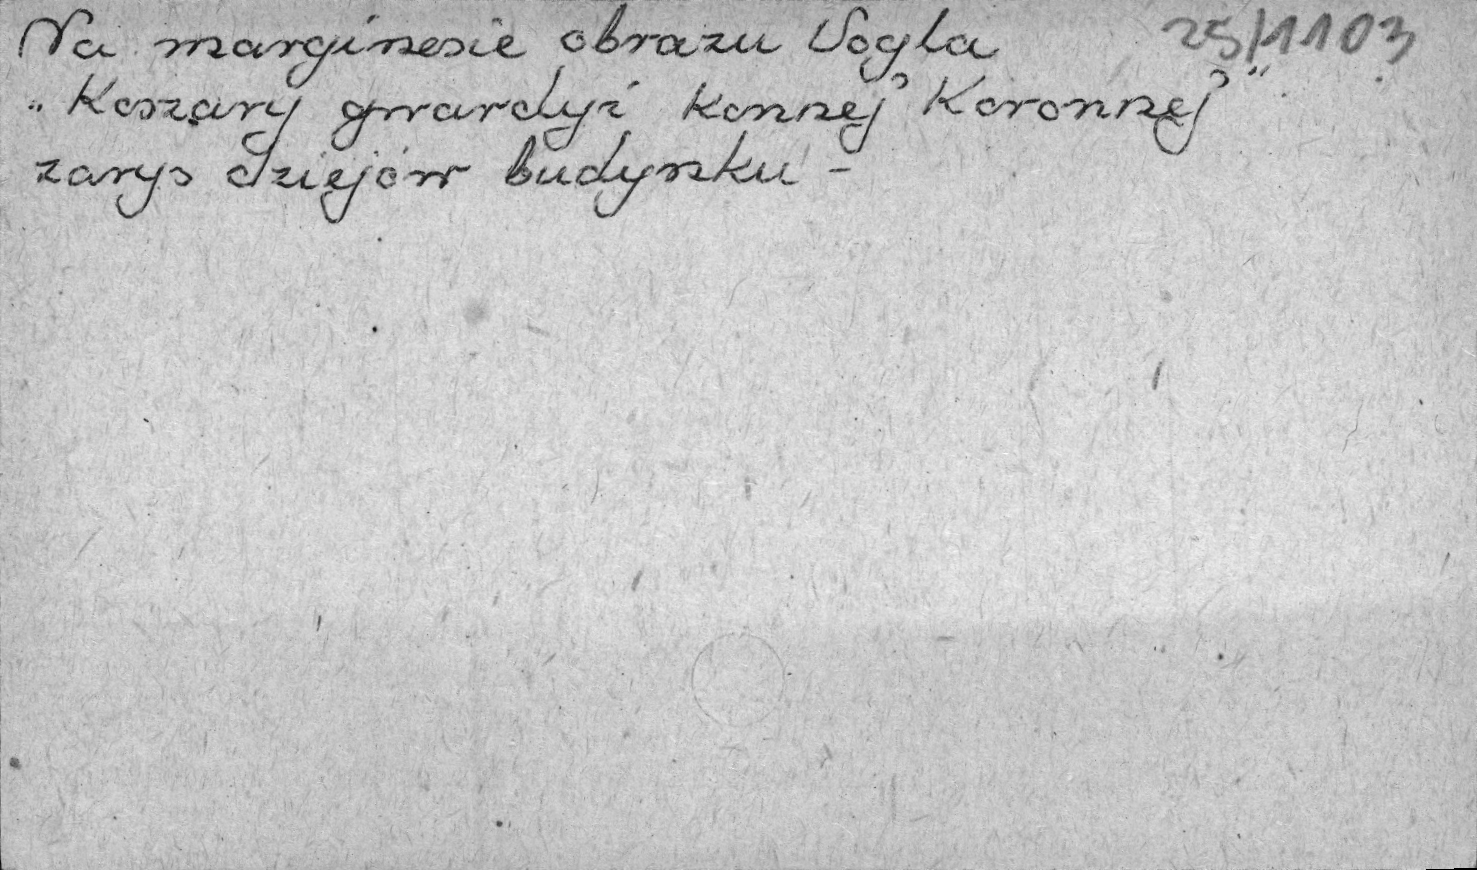 Na marginesie obrazu Vogla 25/1103
„Koszary gwardyi Konnej Koronnej"
zarys dziejów budynku -